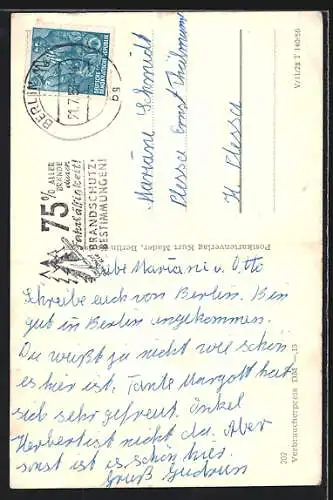 BERLIN
bg
75% ALLER
BRÄNDE
durch
Fahrlässigkeit!
BRANDSCHUTZ-
BESTIMMUNGEN!
Mariane Schmidt
Plessa Ernst Thälmann
H Plessa
V/11/28 T 140/56
Postkartenverlag Kurt Mader, Berlin
Liebe Mariani u. Otto
Schreibe euch von Berlin. Bin
gut in Berlin angekommen.
Du weißt ja nicht wie schön
es hier ist. Tante Margott hat
sich sehr gefreut. Onkel
Herbert ist nicht da. Aber
sonst ist es schön hier.
Gruß Gudrun
202 Verbraucherpreis DM —,15